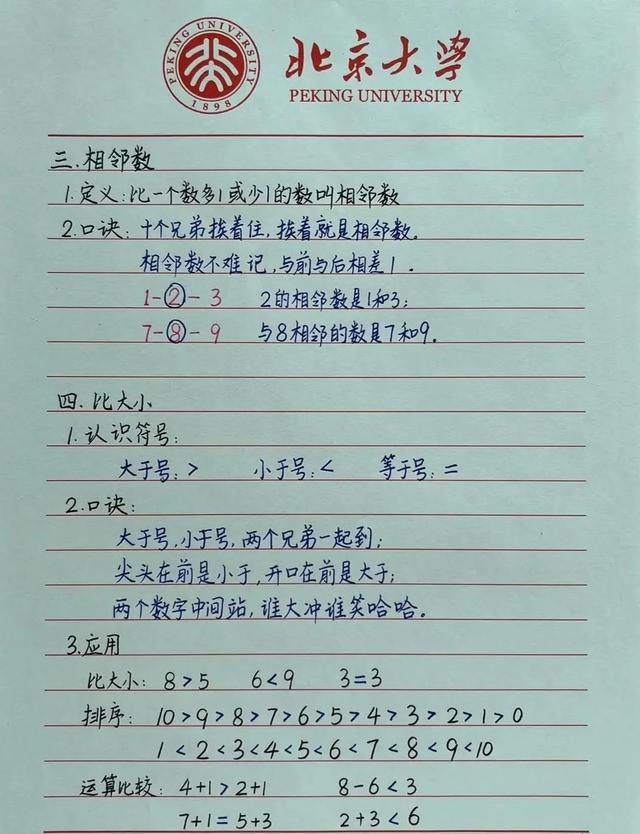 PEKING UNIVERSITY
1898
北京大学
PEKING UNIVERSITY
三.相邻数
1.定义:比一个数多1或少1的数叫相邻数
2.口诀:十个兄弟挨着住,挨着就是相邻数。
相邻数不难记,与前与后相差1.
1-②-3 2的相邻数是1和3;
7-⑧-9 与8相邻的数是7和9。
四.比大小
1.认识符号:
大于号:> 小于号:< 等于号:=
2.口诀:
大于号,小于号,两个兄弟一起到;
尖头在前是小于,开口在前是大于;
两个数字中间站,谁大冲谁笑哈哈。
3.应用
比大小: 8>5 6<9 3=3
排序: 10>9>8>7>6>5>4>3>2>1>0
1<2<3<4<5<6<7<8<9<10
运算比较: 4+1>2+1 8-6<3
7+1=5+3 2+3<6